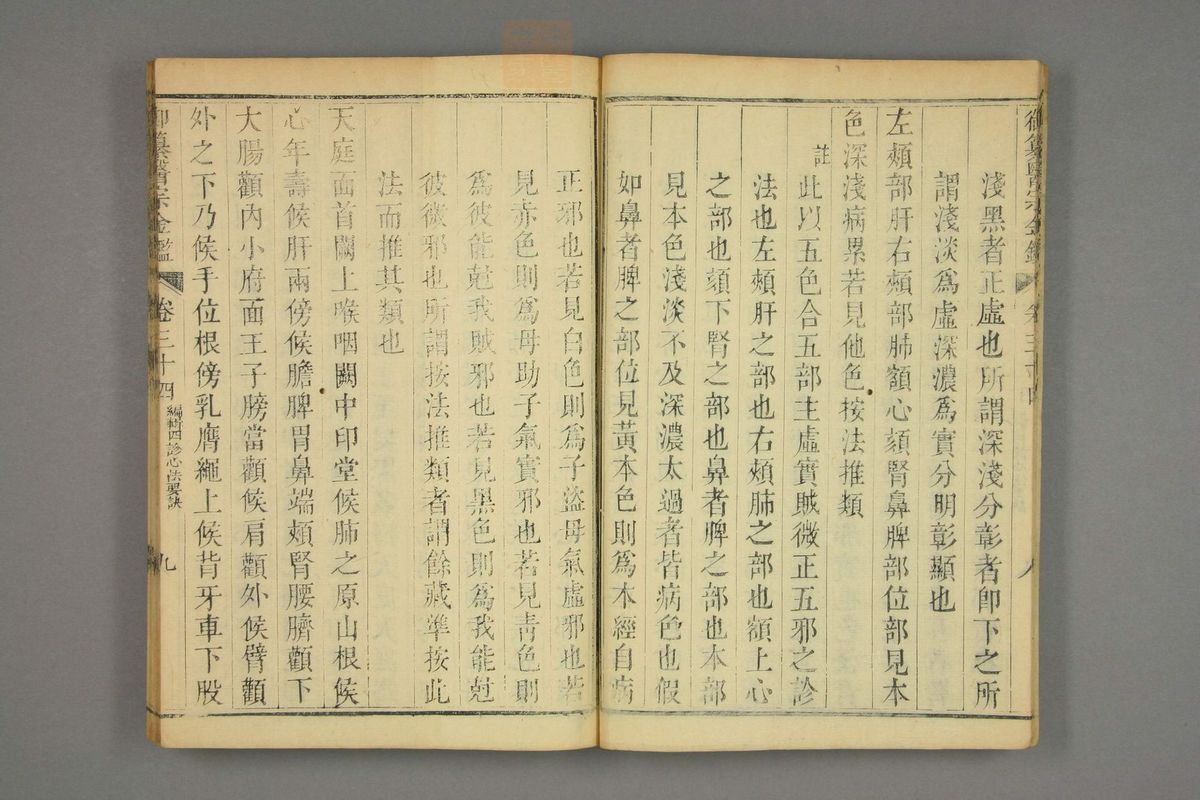 淺黑者正虛也所謂深淺分彰者卽下之所
謂淺淡爲虛深濃爲實分明彰顯也
左頰部肝右頰部肺額心頦腎鼻脾部位部見本
色深淺病累若見他色按法推類
註
此以五色合五部主虛實賊微正五邪之診
法也左頰肝之部也右頰肺之部也額上心
之部也頦下腎之部也鼻者脾之部也本部
見本色淺淡不及深濃太過者皆病色也假
如鼻者脾之部位見黃本色則爲本經自病
正邪也若見白色則爲子盜母氣虛邪也若
見赤色則爲母助子氣實邪也若見靑色則
爲彼能尅我賊邪也若見黑色則爲我能尅
彼微邪也所謂按法推類者謂餘藏準按此
法而推其類也
天庭面首闕上喉咽闕中印堂候肺之原山根候
心年壽候肝兩傍候膽脾胃鼻端頰腎腰臍顴下
大腸顴內小府面王子膀當顴候肩顴外候臂顴
外之下乃候手位根傍乳膺繩上候背牙車下股
御纂醫宗金鑑
卷三十四
編輯四診心法要訣
九